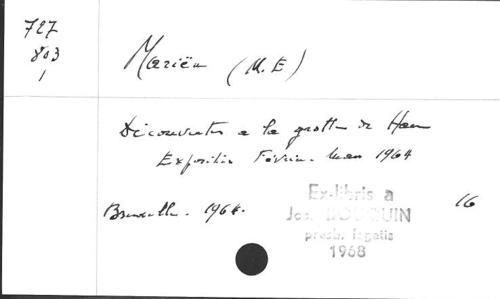 727
803
1
Mariën (M.E)
Découvertes a la grotte de Han
Exposition Février-Mars 1964
Bruxelles. 1964.
16
Ex-libris a
Jos. BOUQUIN
presb. legatis
1968